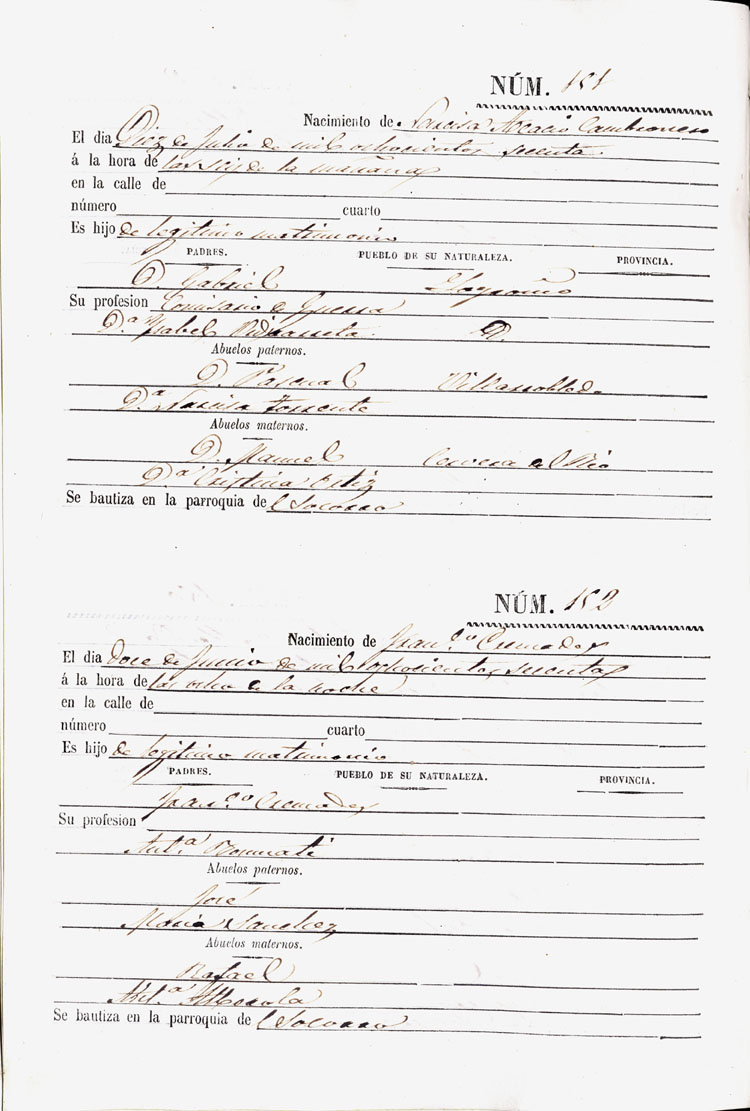 NÚM. 151
Nacimiento de Narcisa Acacio Cambronero
El dia Diez de Julio de mil ochocientos sesenta
á la hora de las seis de la mañana
en la calle de
número cuarto
Es hijo de legitimo matrimonio
PADRES. PUEBLO DE SU NATURALEZA. PROVINCIA.
D. Gabriel Logroño
Su profesion Comisario de Guerra
D.ª Ysabel D.
Abuelos paternos.
D. Pascual Villarrobledo
D.ª Narcisa Torrente
Abuelos maternos.
D. Manuel Cervera del Rio
D.ª Cristina Ortiz
Se bautiza en la parroquia de l Socorro
NÚM. 152
Nacimiento de Fran.co Cremades
El dia Doce de Junio de mil ochocientos sesenta
á la hora de las ocho de la noche
en la calle de
número cuarto
Es hijo de legitimo matrimonio
PADRES. PUEBLO DE SU NATURALEZA. PROVINCIA.
Fran.co Cremades
Su profesion
Ant.ª Bosmati
Abuelos paternos.
José
Maria Sanchez
Abuelos maternos.
Rafael
Ant.ª Alberola
Se bautiza en la parroquia de l Socorro